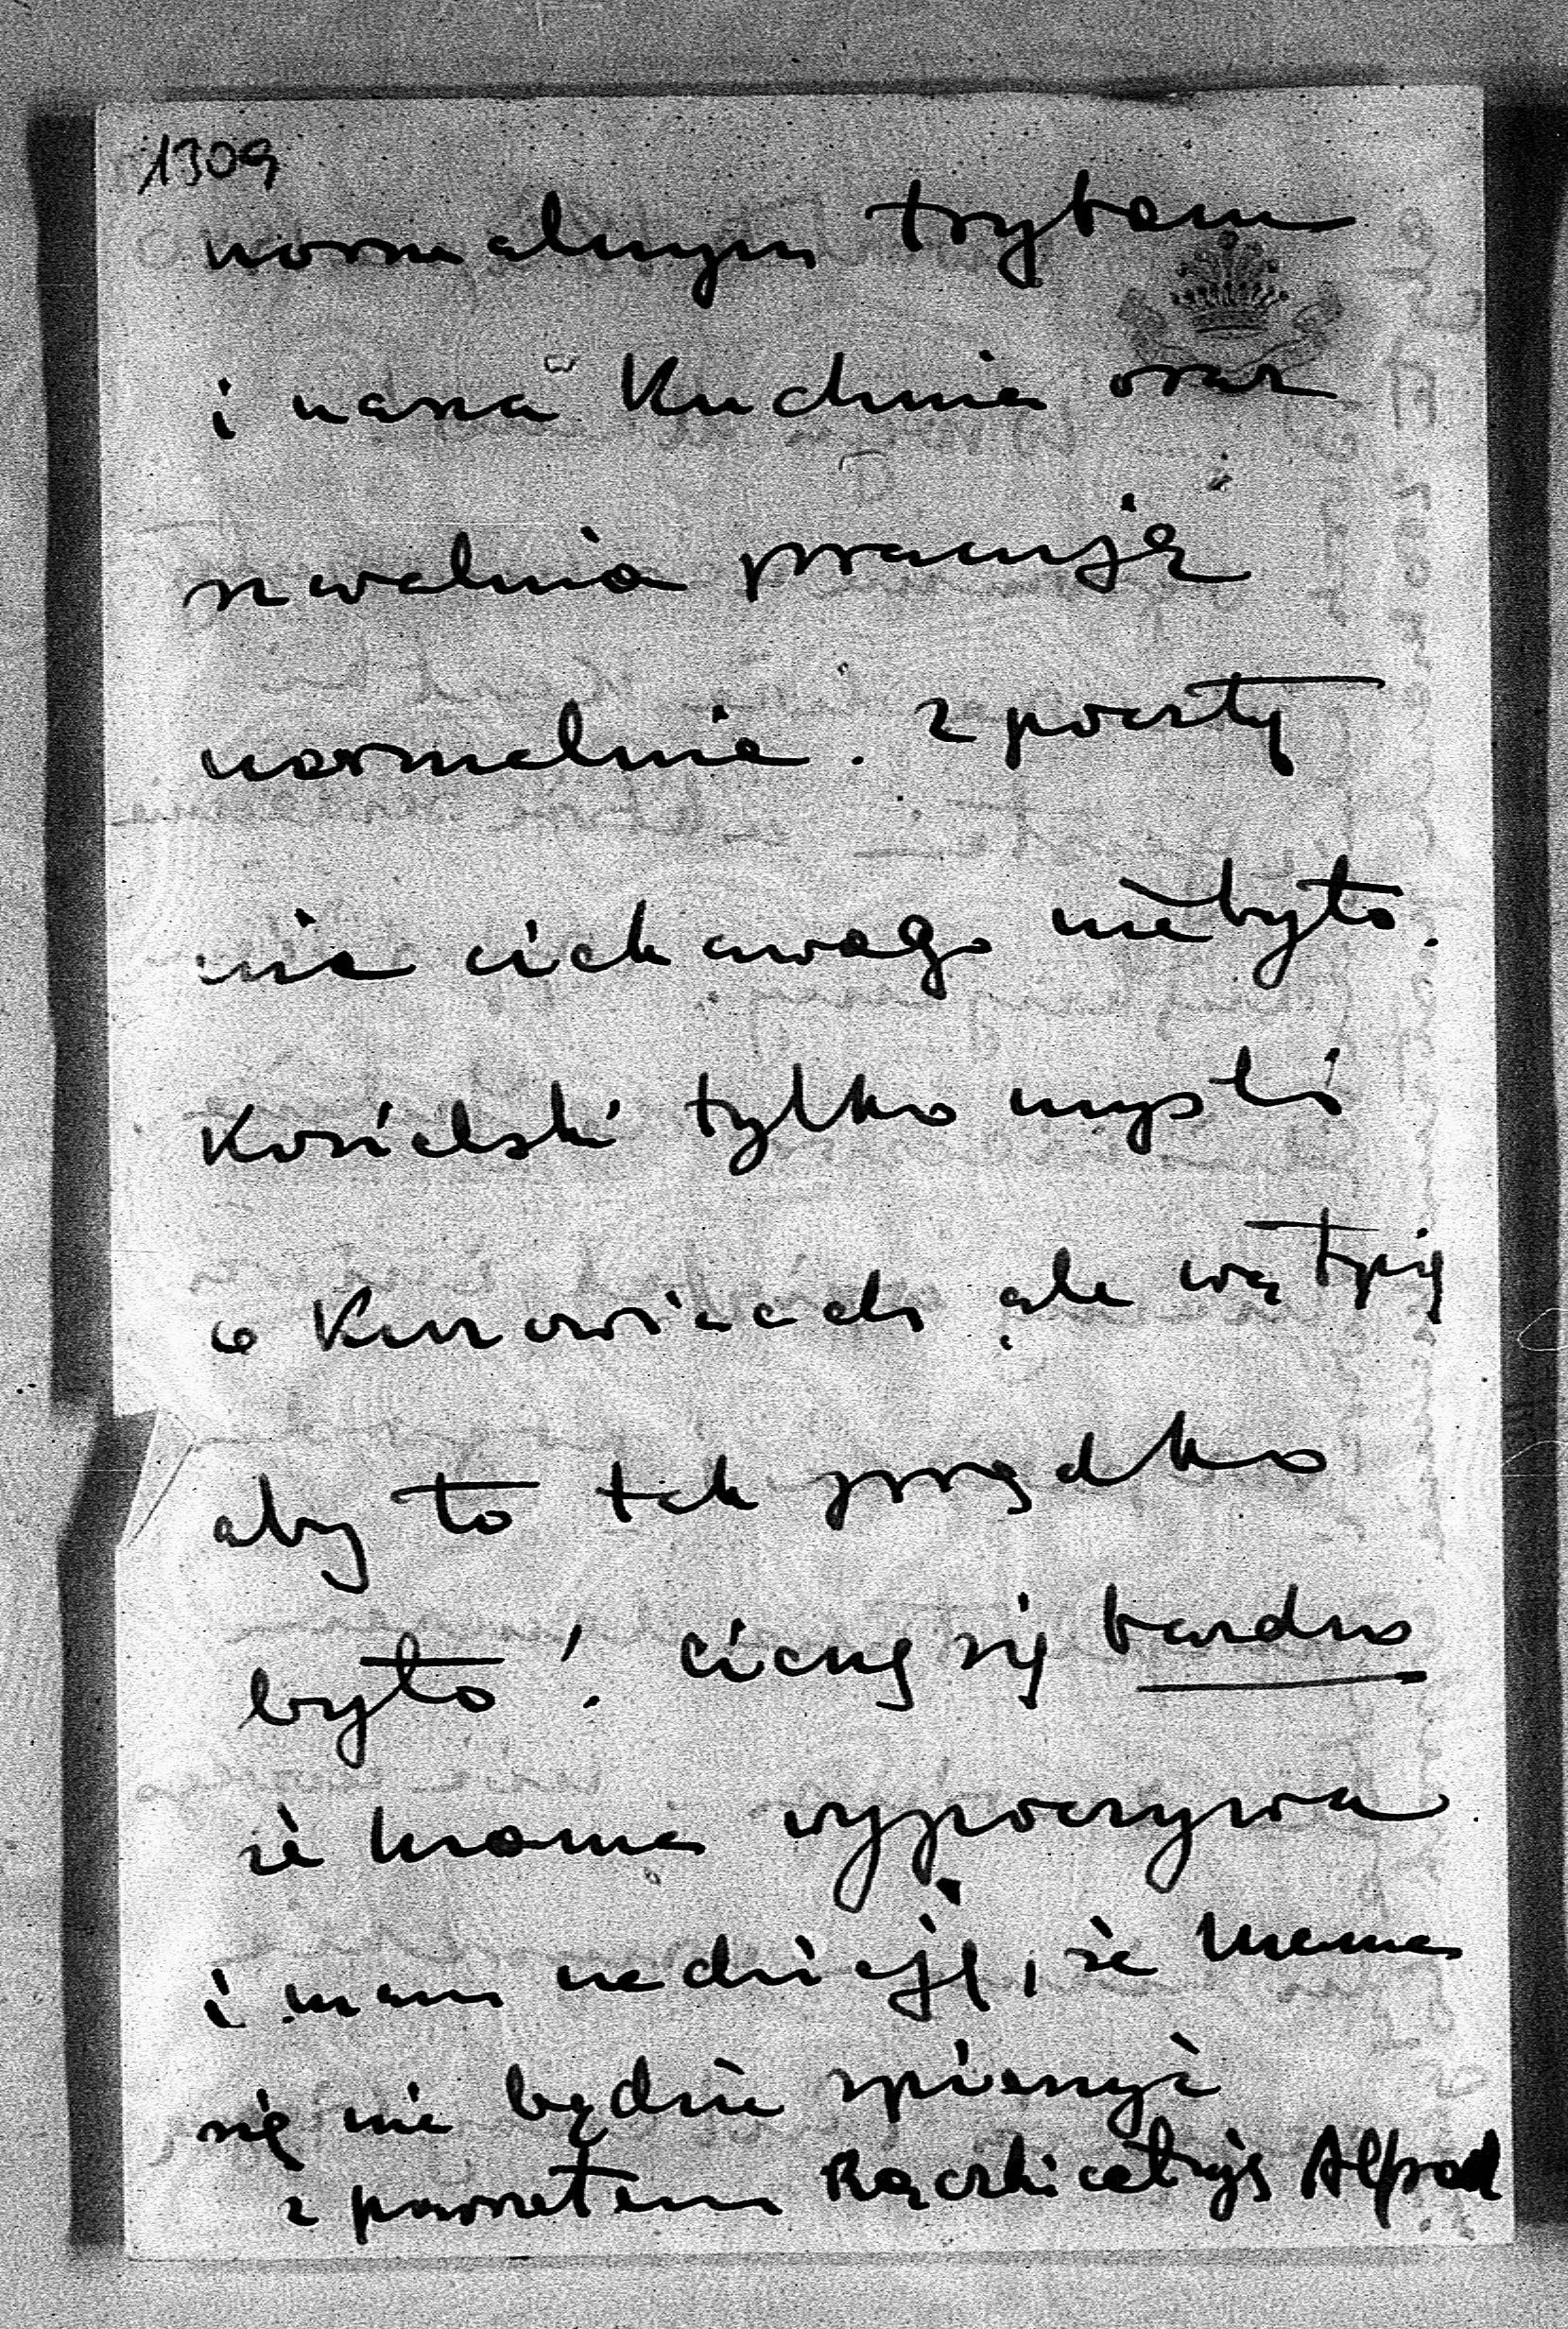 1309
normalnym trybem
i nasza Kuchnia oraz
szwalnia pracuje
normalnie. Z poczty
nic ciekawego nie było.
Kosielski tylko myśli
o Kurowicach ale wątpię
aby to tak prędko
było! Cieszę się bardzo
że mama wypoczywa
i mam nadzieję, że Mama
się nie będzie spieszyć
z powrotem Rączki całuję Alfred